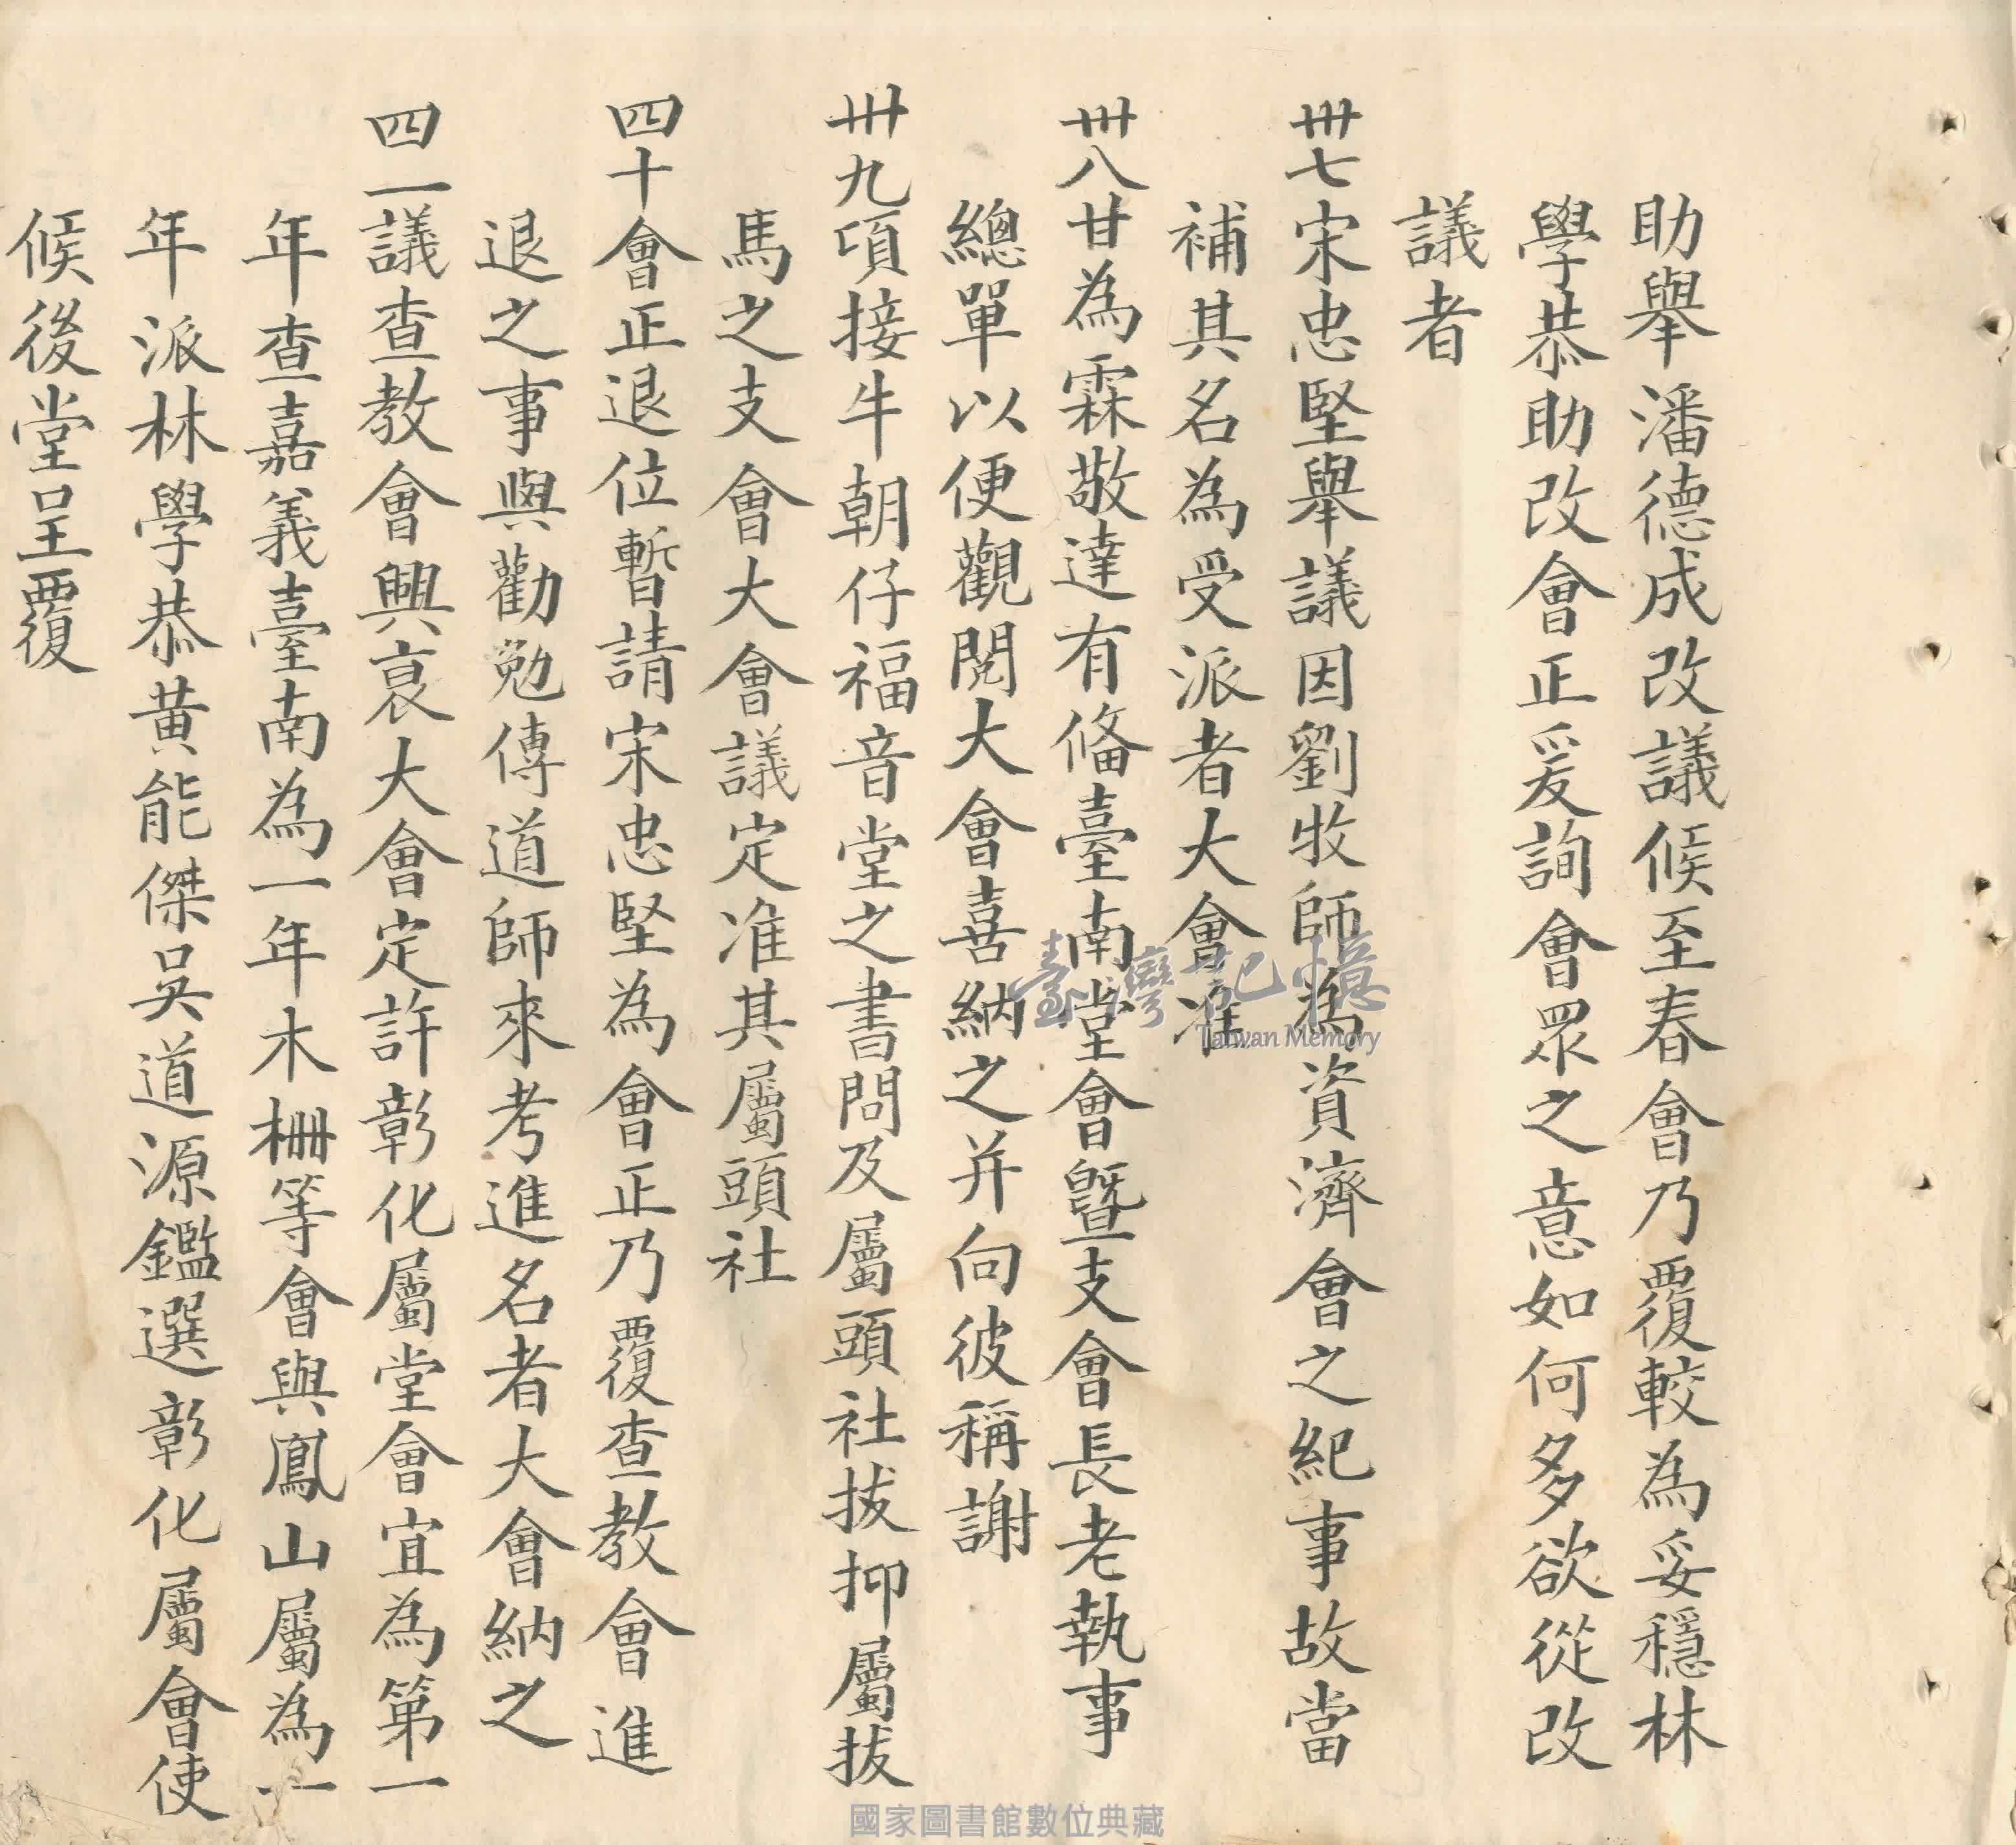 助舉潘德成改議候至春會乃覆較為妥穩林
學恭助改會正爰詢會眾之意如何多欲從改
議者
卅七宋忠堅舉議因劉牧師為資濟會之紀事故當
補其名為受派者大會准
卅八甘為霖敬達有俻臺南堂會暨支會長老執事
總單以便觀閱大會喜納之并向彼稱謝
卅九項接牛朝仔福音堂之書問及屬頭社抜抑屬抜
馬之支會大會議定准其屬頭社
四十會正退位暫請宋忠堅為會正乃覆查教會進
退之事與勸勉傳道師來考進名者大會納之
四一議查教會興衰大會定許彰化屬堂會宜為第一
年查嘉義臺南為一年木柵等會與鳳山屬為一
年派林學恭黃能傑吳道源鑑選彰化屬會使
候後堂呈覆
臺灣記憶
Taiwan Memory
國家圖書館數位典藏